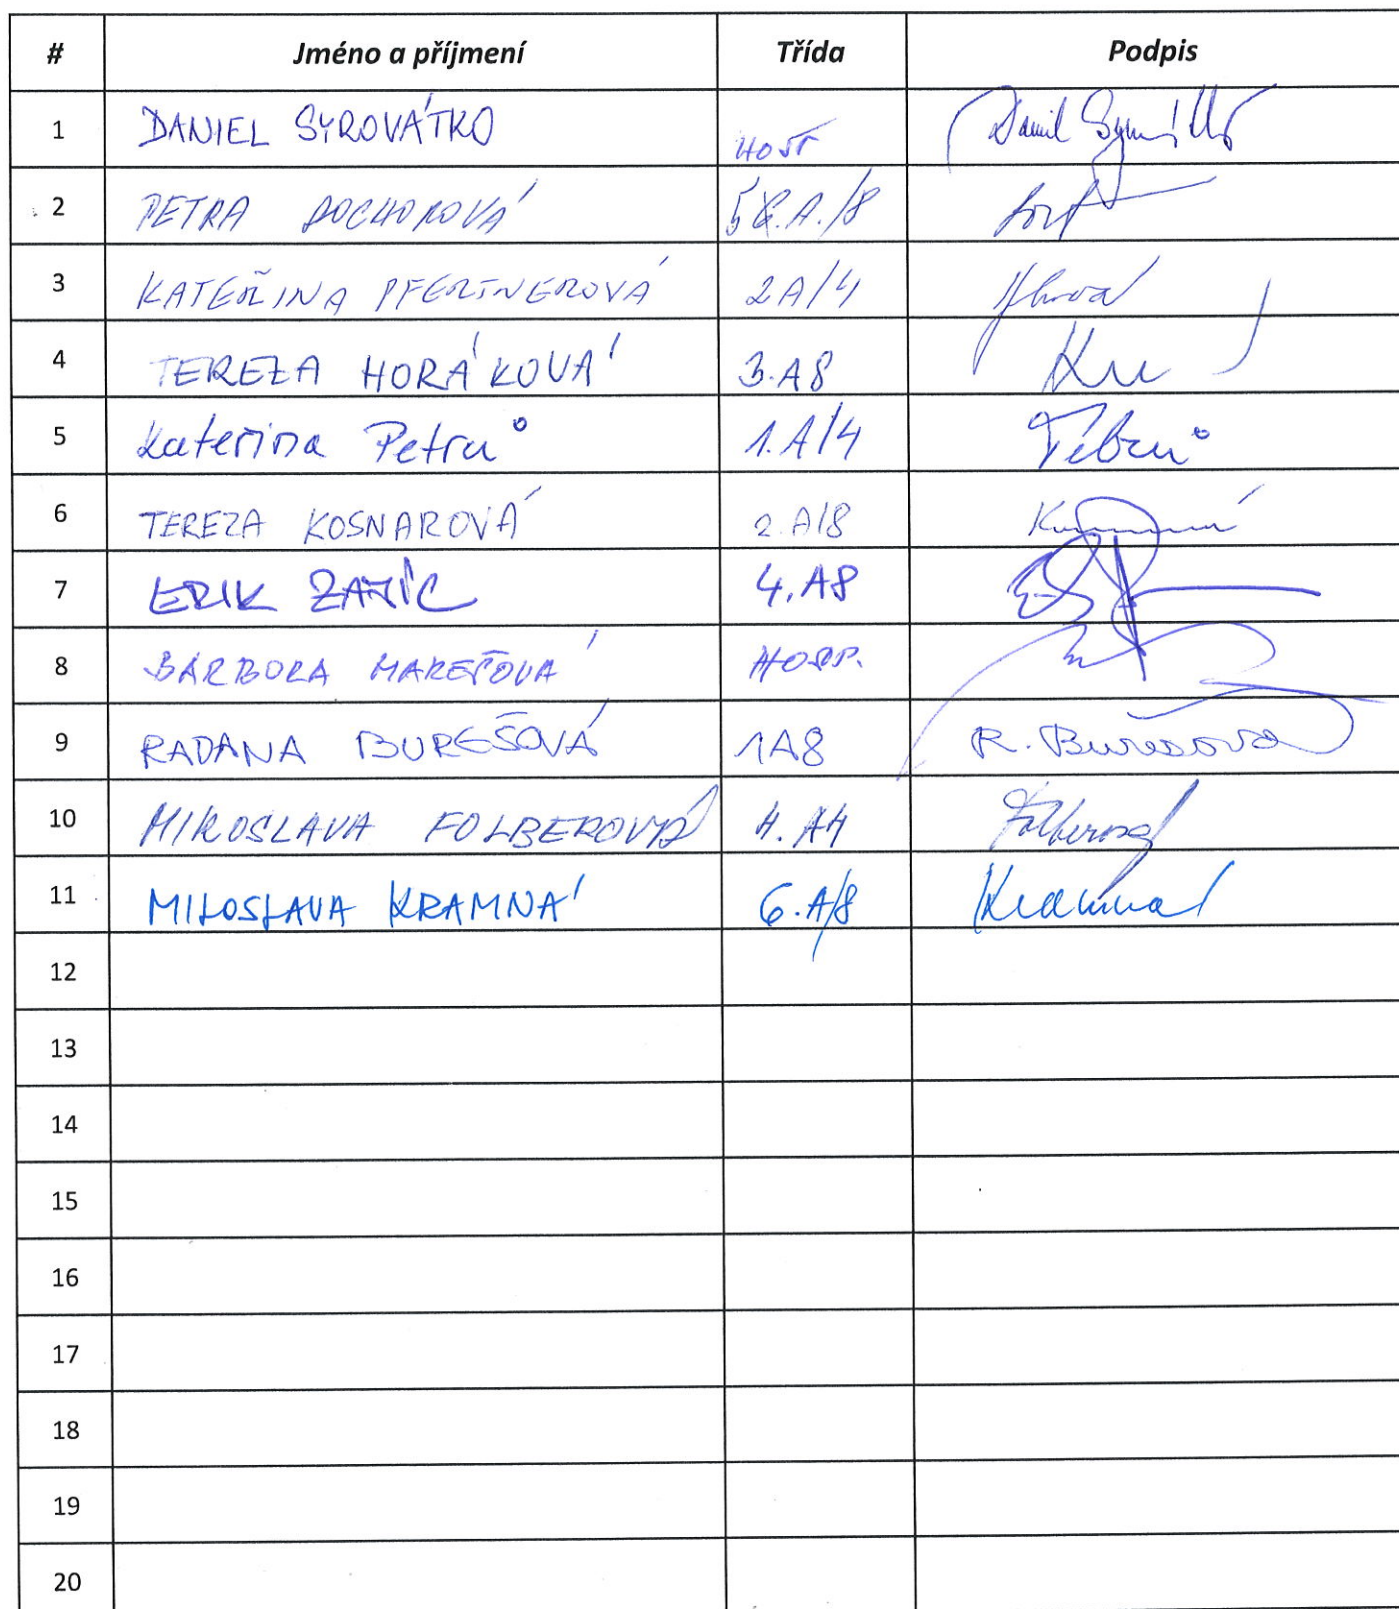 # Jméno a příjmení Třída Podpis
1 DANIEL SYROVÁTKO HOST Daniel Syrovátko
2 PETRA 5.A./8
3 KATEŘINA PFERTNEROVÁ 2A/4
4 TEREZA HORÁKOVÁ 3.A8
5 Kateřina Petrů 1.A/4 Petrů
6 TEREZA KOSNAROVÁ 2.A/8
7 ERIK ZAJÍC 4.A8
8 BARBORA MAREŠOVÁ HOSP.
9 RADANA BUREŠOVÁ 1A8 R. Burešová
10 MIROSLAVA FOLBEROVÁ 4.A4 Folberová
11 MILOSLAVA KRAMNÁ 6.A/8 Kramná
12
13
14
15
16
17
18
19
20